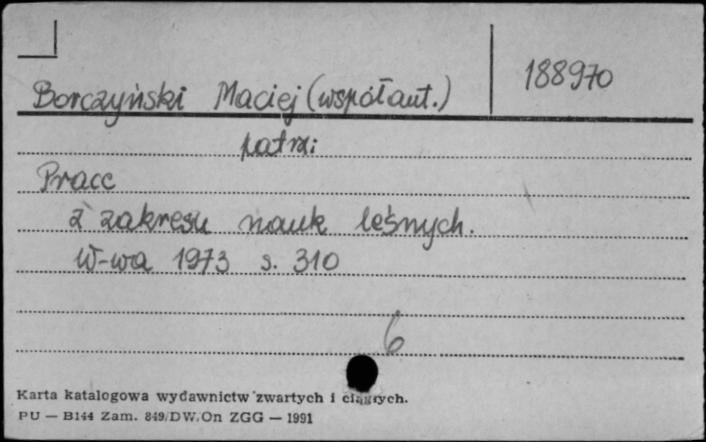 188970
Borczyński Maciej (współaut.)
patrz:
Prace
z zakresu nauk leśnych.
W-wa 1973 s. 310
6
Karta katalogowa wydawnictw zwartych i ciągłych.
PU — B144 Zam. 849/DW/On ZGG — 1991